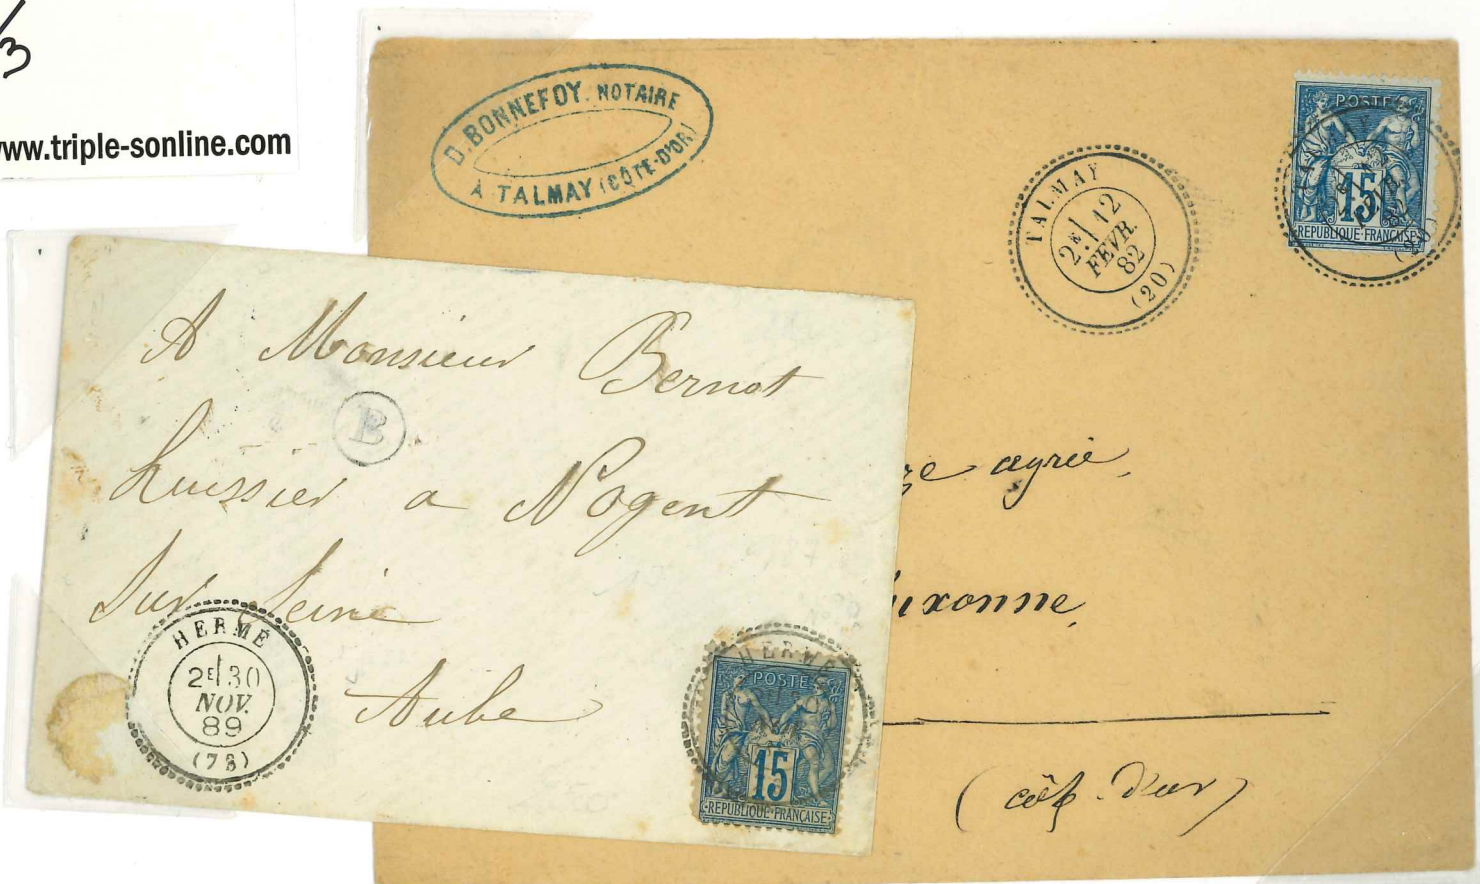 3
www.triple-sonline.com
D. BONNEFOY. NOTAIRE
À TALMAY (CÔTE-D'OR)
TALMAY
2E 12
FEVR.
82
(20)
POSTE
15
REPUBLIQUE FRANÇAISE
A Monsieur Bernot
huissier a Nogent
Sur Seine
Aube
B
HERMÉ
2E 30
NOV.
89
(73)
HERMÉ
POSTE
15
REPUBLIQUE FRANÇAISE
agréé,
uxonne,
(côte-d'or)